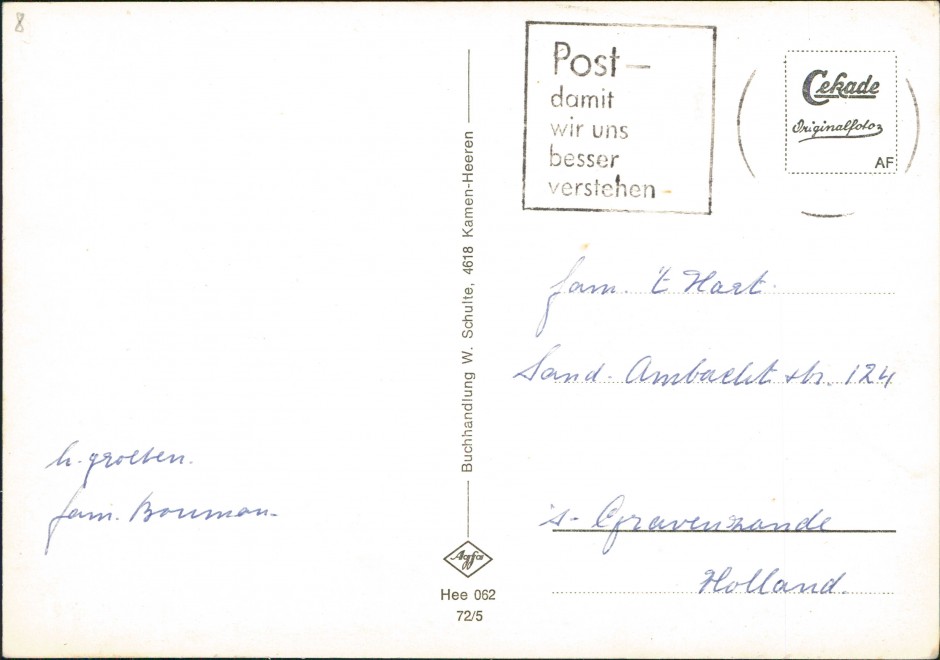 8
Post –
damit
wir uns
besser
verstehen –
Cekade
Originalfotos
AF
Buchhandlung W. Schulte, 4618 Kamen-Heeren
fam. 't Hart.
Sand. Ambacht str. 124
's- Gravenzande
Holland.
h. groeten.
fam. Bouman.
Agfa
Hee 062
72/5